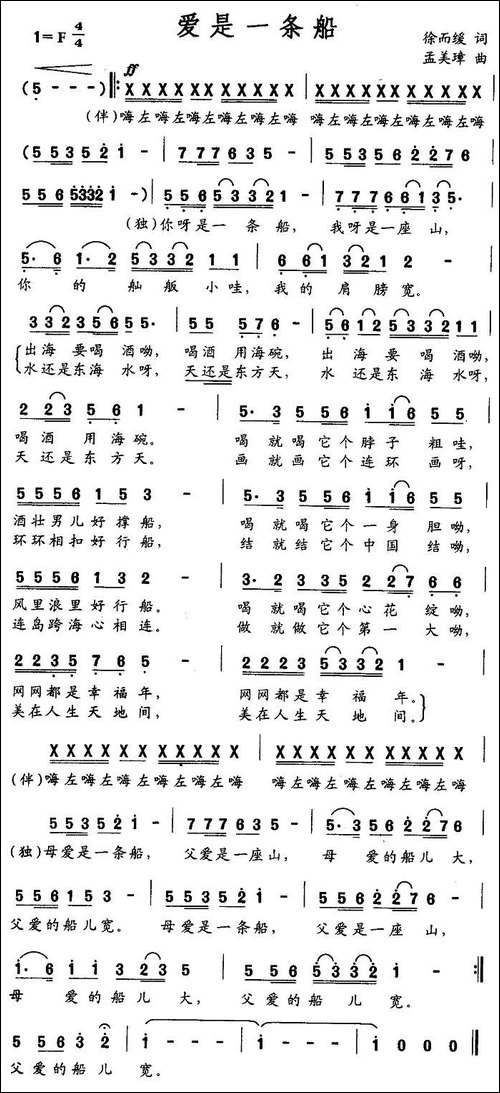 爱是一条船
1=F 4/4
徐而缓 词
孟美璋 曲
ff
(5 - - -) ‖: X X X X X X X X X X | X X X X X X X X X X
(伴)嗨左嗨左嗨左嗨左嗨左嗨 嗨左嗨左嗨左嗨左嗨左嗨
( 5 5 3 5 2 1 - | 7 7 7 6 3 5 - | 5 5 3 5 6 2 2 7 6
5 5 6 5 3 3 2 1 - ) | 5 5 6 5 3 3 2 1 - | 7 7 7 6 6 1 3 5 ·
(独)你呀是一条船, 我呀是一座山,
5 · 6 1 · 2 3 3 2 3 2 1 1 | 6 6 1 3 2 1 2 -
你的舢舨小哇, 我的肩膀宽。
3 3 2 3 5 6 5 5 · | 5 5 5 7 6 - | 5 6 1 2 5 3 3 2 1 1
出海要喝酒呦, 喝酒用海碗, 出海要喝酒呦,
水还是东海水呀, 天还是东方天, 水还是东海水呀,
2 2 3 5 6 1 - | 5 · 3 5 5 6 1 1 6 5 5
喝酒用海碗。 喝就喝它个脖子粗哇,
天还是东方天。 画就画它个连环画呀,
5 5 5 6 1 5 3 - | 5 · 3 5 5 6 1 1 6 5 5
酒壮男儿好撑船, 喝就喝它个一身胆呦,
环环相扣好行船, 结就结它个中国结呦,
5 5 5 6 1 3 2 - | 3 · 2 3 3 5 2 2 7 6 6
风里浪里好行船。 喝就喝它个心花绽呦,
连岛跨海心相连。 做就做它个第一大呦,
2 2 3 5 7 6 5 - | 2 2 2 3 5 3 3 2 1 -
网网都是幸福年, 网网都是幸福年。
美在人生天地间, 美在人生天地间。
X X X X X X X X X X | X X X X X X X X X X
(伴)嗨左嗨左嗨左嗨左嗨左嗨 嗨左嗨左嗨左嗨左嗨左嗨
5 5 3 5 2 1 - | 7 7 7 6 3 5 - | 5 · 3 5 6 2 2 7 6
(独)母爱是一条船, 父爱是一座山, 母爱的船儿大,
5 5 6 1 5 3 - | 5 5 3 5 2 1 - | 5 5 5 6 2 2 7 6 -
父爱的船儿宽。 母爱是一条船, 父爱是一座山,
1 · 6 1 1 3 2 3 5 | 5 5 6 5 3 3 2 1 - :‖
母爱的船儿大, 父爱的船儿宽。
5 5 6 3 2 | 1 - - - | 1 - - - | 1 0 0 0 ‖
父爱的船儿宽。